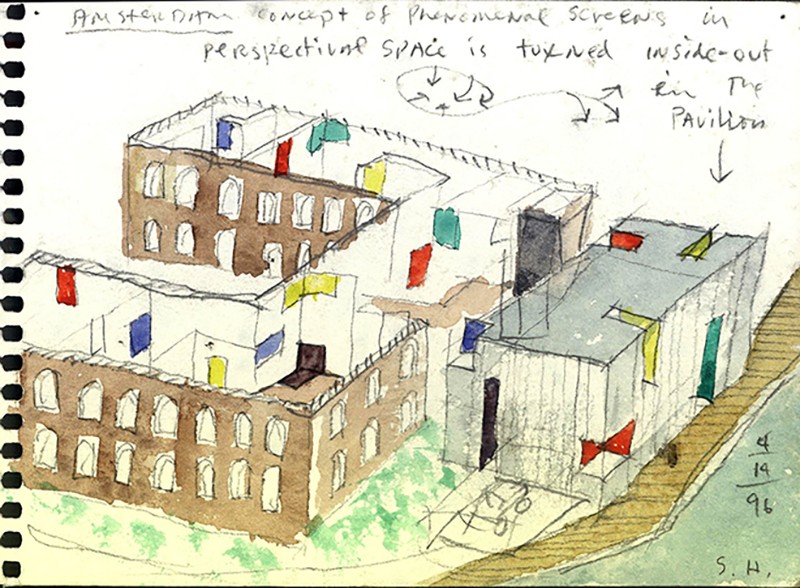 AMSTERDAM concept of Phenomenal Screens in
perspectival space is turned inside-out
in The
Pavillion
4
14
96
S. H.